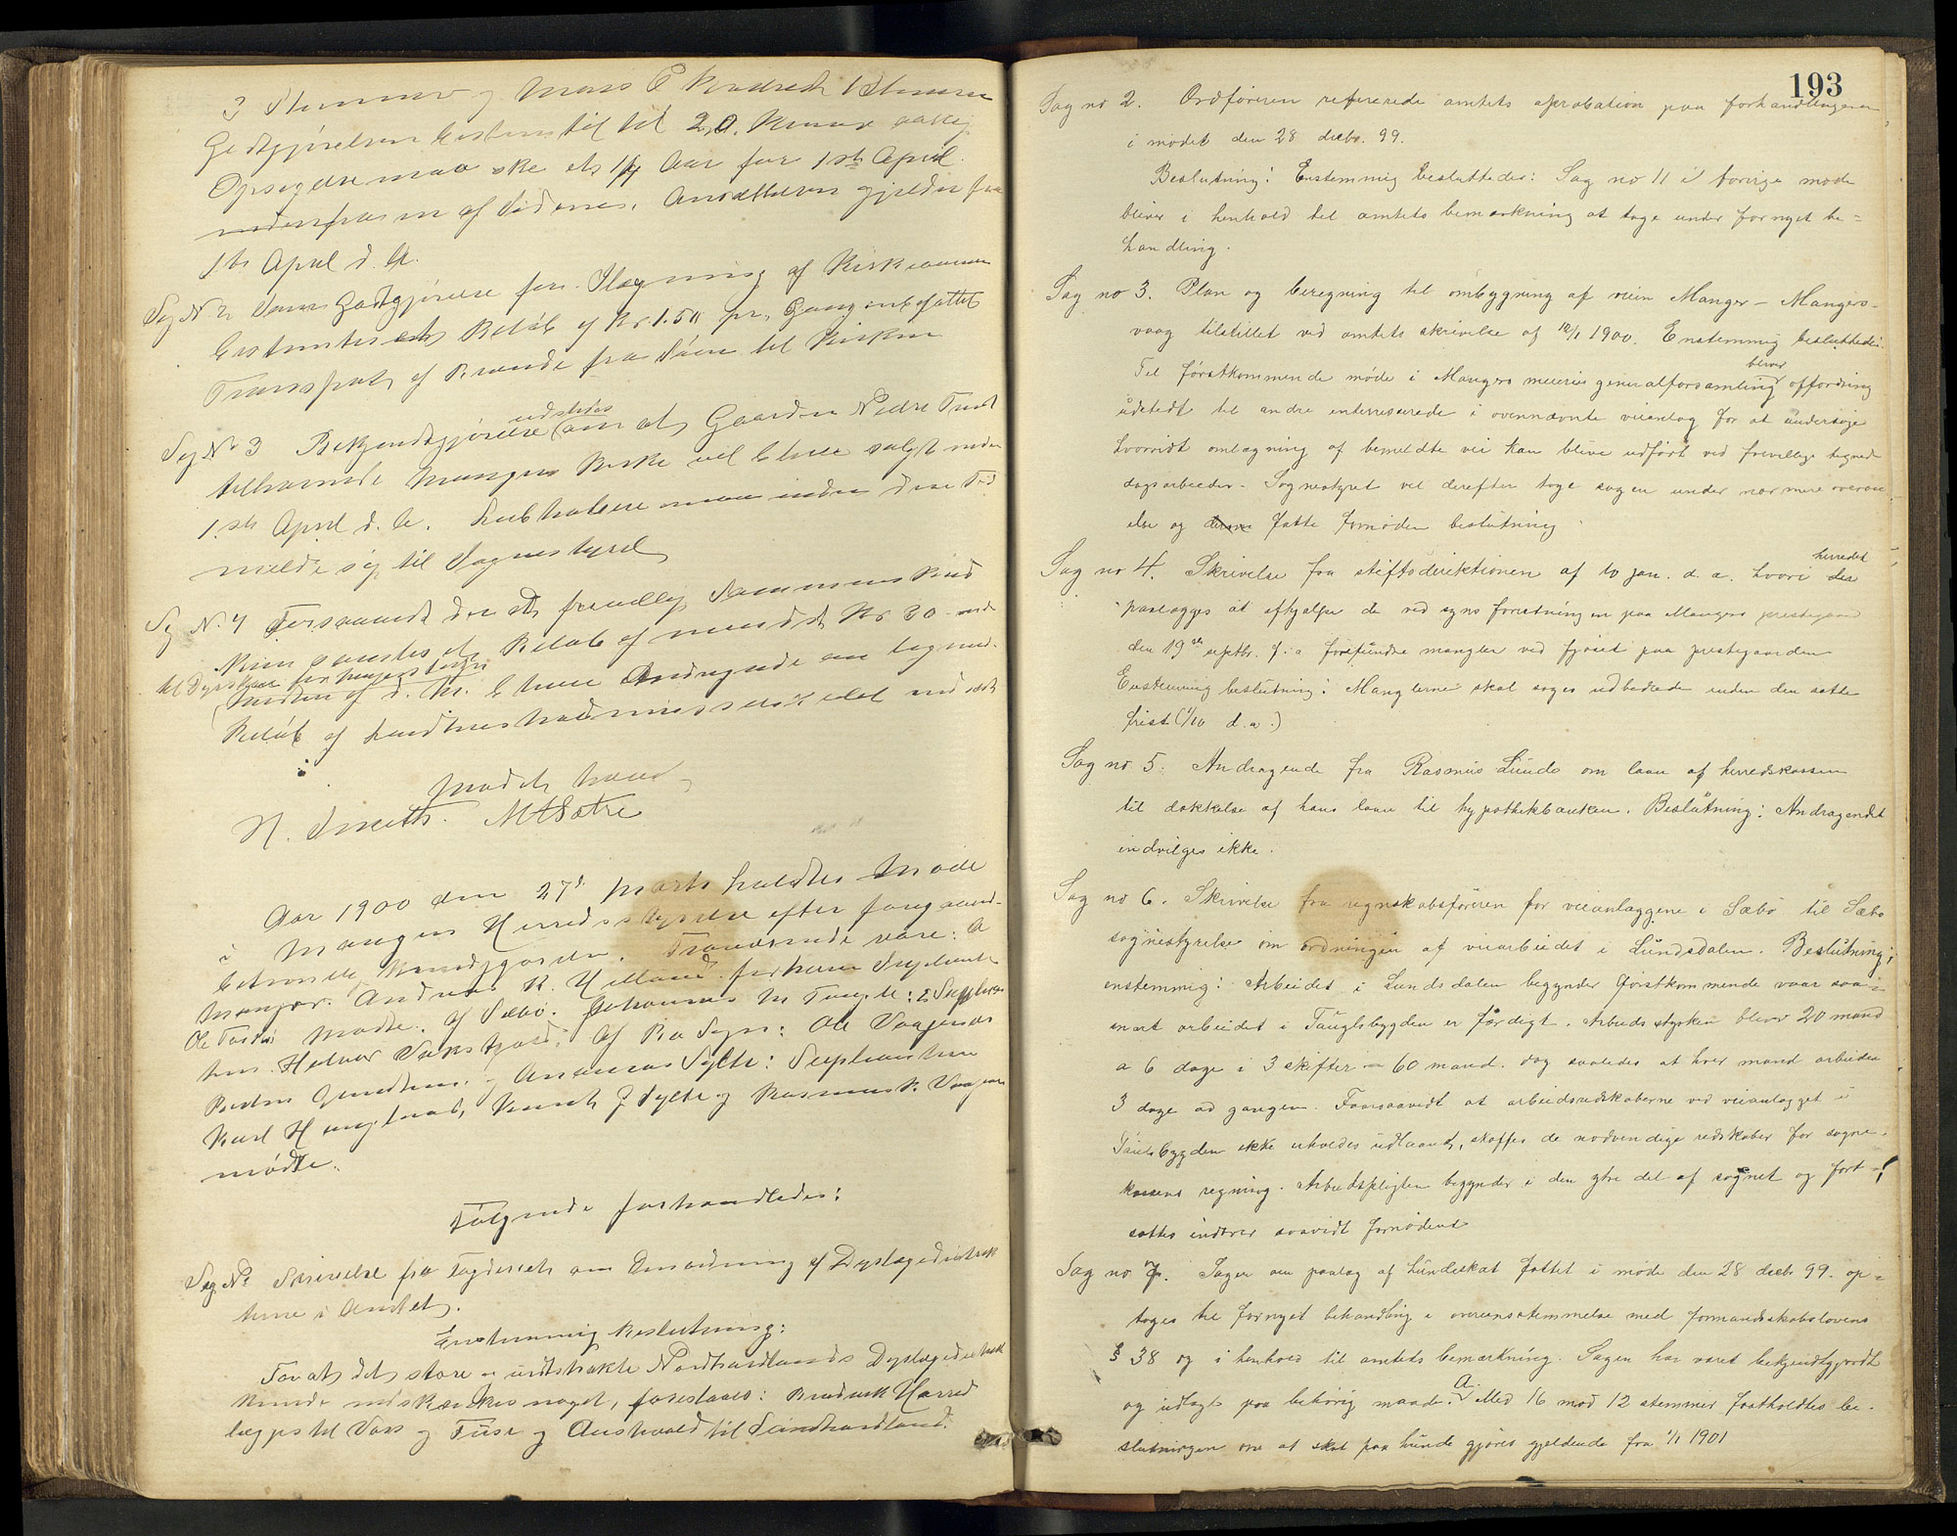 3 Stemmer og Mons E Kvadrsh 1 Stemme
Godtgjørelsen bestemtes til 20 Kroner aarlig
Opsigelse maa ske et 1/4 Aar før 1ste April
af Siderne. Ansættelsen gjelder fra
1ste April d. A.
Sag N 2 Som Godtgjørelse for Slagning af Kirkerummen
bestemtes et Beløb af Kr 1.50 pr. Gang indbefattet
Transport af Brænde fra Søen til Kirken
Sag No 3 Bekjendtgjørelse udstedes om at Gaarden Nedre Tvedt
tilhørende Mangers Kirke vil blive solgt inden
1ste April d. A. Lysthavere maa inden den Tid
melde sig til Sognestyret
Sag N. 4 Forsaavidt der ved frivillig Sammenskud
kan samles et Beløb af mindst Kr 30 inden
til Dyrskuet for Mangers Sogn
af d. M. blive Andragende om lignende
Beløb af Landhusholdningsselskabet indsendt
Mødet hævet
H. Smith. M A Sætre
Aar 1900 den 27de Marts holdtes Møde
i Manger Herredsstyrelse efter foregaaende
betimelig Kundgjørelse. Fraværende vare: A
Manger. Andreas K. Helland. for ham Suplianten
Ole Toska mødte. Af Sæbø: Johannes M Tungle: Suppleanten
Halvor Saksgaard. Af Bø Sogn: Ole Vaagenes
og Andreas Sylte: Suplianterne
Karl Haugland, Knut J Sylte og Rasmus K. Vaagenes
mødte.
Følgende forhandledes:
Sag No 1 Skrivelse fra Fogderiet om Omordning af Dyrlægedistrik
terne i Amtet.
Enstemmig Beslutning:
For at det store og udstrakte Nordhordlands Dyrlægedistrikt
kunde indskrænkes noget, foreslaaes: Bruvik Herred
lægges til Voss og Fuse og Austevold til Søndhordland.
193
Sag no 2. Ordføreren refererede amtets aprobation paa forhandlingerne
i mødet den 28 decbr. 99.
Beslutning: Enstemmig besluttedes: Sag no 11 i forrige møde
bliver i henhold til amtets bemærkning at tage under fornyet be=
handling.
Sag no 3. Plan og beregning til ombygning af veien Manger – Mangers-
vaag tilstillet ved amtets skrivelse af 12/1 1900. Enstemmig besluttedes:
Til førstkommende møde i Mangers meieries generalforsamling bliver opfordring
udstedt til andre interesserede i ovennævnte veianlæg for at undersøge
hvorvidt omlægning af bemeldte vei kan blive udført ved frivillige tegnede
dagsarbeider. Sognestyret vil derefter tage sagen under nærmere overvei
else og fatte fornøden beslutning
Sag no 4. Skrivelse fra stiftsdirektionen af 10 jan. d. a. hvori herredet
paalægges at afhjælpe de ved synsforretningen paa Mangers prestegaard
den 19de septbr. f. a forefundne mangler ved fjøset paa prestegaarden
Enstemmig beslutning: Manglerne skal søges udbedrede inden den satte
frist (1/10 d.a.)
Sag no 5. Andragende fra Rasmus Lunde om laan af herredskassen
til dækkelse af hans laan til hypothekbanken. Beslutning: Andragendet
indvilges ikke.
Sag no 6. Skrivelse fra regnskabsføreren for veianlæggene i Sæbø til Sæbø
sognestyrelse om ordningen af veiarbeidet i Lundsdalen. Beslutning,
enstemmig: Arbeidet i Lundsdalen begynder førstkommende vaar saa=
snart arbeidet i Tauglsbygden er færdigt. Arbeidsstyrken bliver 20 mand
a 6 dage i 3 skifter – 60 mand. dog saaledes at hver mand arbeider
3 dage ad gangen. Forsaavidt at arbeidsredskaberne ved veianlægget i
Tauglsbygden ikke erholdes udlaant, skaffes de nødvendige redskaber for sogne-
kassens regning. Arbeidspligten begynder i den ytre del af sognet og fort-
sættes indover saavidt fornødent
Sag no 7. Sagen om paalæg af hundeskat fattet i møde den 28 decbr 99. op=
tages til fornyet behandling i overensstemmelse med formandskabslovens
§ 38 og i henhold til amtets bemærkning. Sagen har været bekjendtgjordt
og udlagt paa behørig maade. Med 16 mod 12 stemmer fastholdtes be-
slutningen om at skat paa hunde gjøres gjeldende fra 1/1 1901